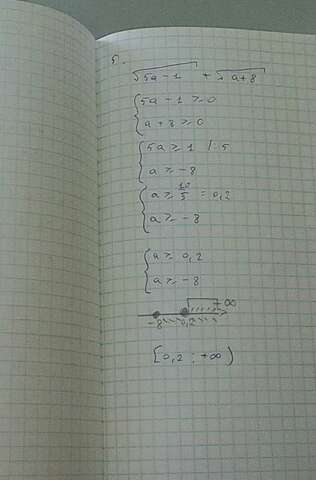 5.
√5a-1 + √a+8
{5a-1 ≥ 0
a+8 ≥ 0
{5a ≥ 1 /:5
a ≥ -8
{a ≥ 10/5 = 0,2
a ≥ -8
{a ≥ 0,2
a ≥ -8
+∞
-8 0,2
[0,2 ; +∞)